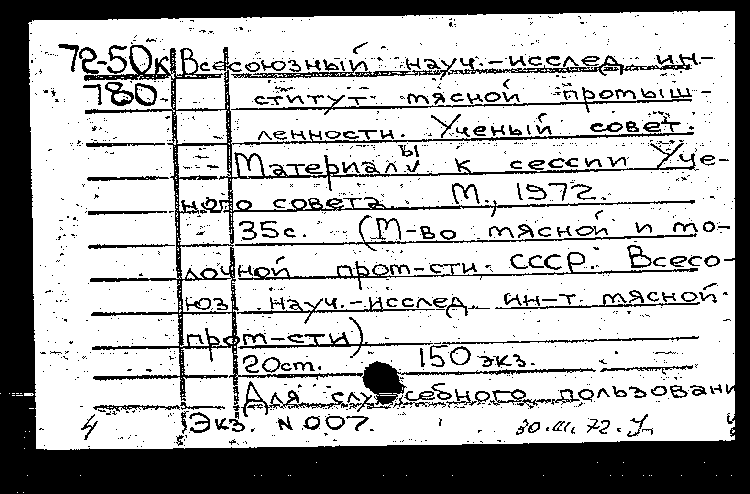 72-50к Всесоюзный науч.-исслед. ин-
780 ститут мясной промыш-
ленности. Ученый совет.
Материалы к сессии Уче-
ного совета. М., 1972.
35с. (М-во мясной и мо-
лочной пром-сти СССР. Всесо-
юз. науч.-исслед. ин-т мясной
пром-сти)
20см. 150 экз.
Для служебного пользовани
4 Экз. N 007. 30.III.72.